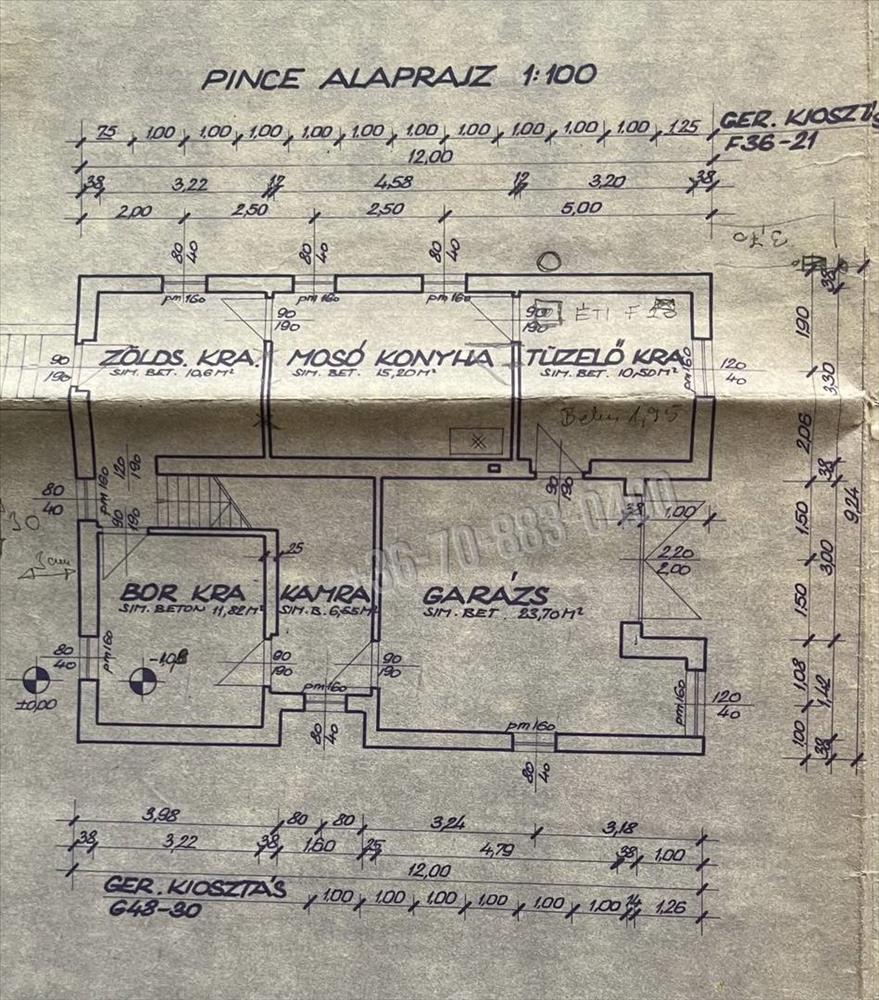 PINCE ALAPRAJZ 1:100
75 1,00 1,00 1,00 1,00 1,00 1,00 1,00 1,00 1,00 1,00 1,25
GER. KIOSZTÁS
F36-21
12,00
38 3,22 12 4,58 12 3,20 38
2,00 2,50 2,50 5,00
3,70
80 40
80 40
80 40
pm 160
pm 160
pm 160
90 190
90 190
ÉTI F
38
1,90
90 190
ZÖLDS. KRA.
SIM. BET. 10,6 M²
MOSÓ KONYHA
SIM. BET. 15,20 M²
TÜZELŐ KRA.
SIM. BET. 10,50 M²
pm 160
120 40
3,30
2,06
38
1,95
120 190
90 190
80 40
pm 160
90 190
30
3 cm
38
1,00
1,50
9,24
+36-70-883-0480
2,20
2,00
3,00
25
BOR KRA
SIM. BETON 11,82 M²
KAMRA
SIM. B. 6,65 M²
GARÁZS
SIM. BET. 23,70 M²
1,50
80 40
pm 160
±0,00
90 190
90 190
pm 160
80 40
pm 160
80 40
pm 160
120 40
1,08
1,42
1,00
38
3,98 80 80 3,24 3,18
38 3,22 38 1,60 25 4,79 38 1,00
12,00
GER. KIOSZTÁS
G48-30
1,00 1,00 1,00 1,00 1,00 1,00 14 1,26